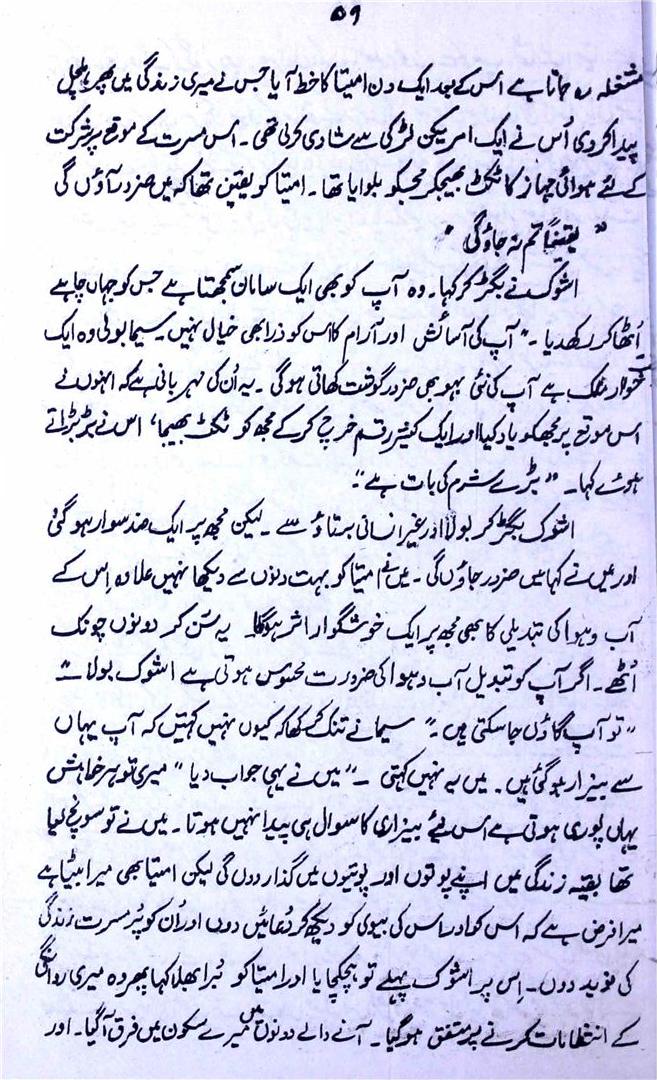 ۵۹
مشغلہ رہ جاتا ہے اس کے بعد ایک دن امیتا کا خط آیا جس نے میری زندگی میں پھر ہلچل
پیدا کر دی اُس نے ایک امریکن لڑکی سے شادی کر لی تھی ۔ اس مسرت کے موقع پر شرکت
کے لئے ہوائی جہاز کا ٹکٹ بھیجکر مجھکو بلوایا تھا ۔ امیتا کو یقین تھا کہ میں ضرور آؤں گی
" یقیناً تم نہ جاؤ گی "
اشوک نے بگڑ کر کہا ۔ وہ آپ کو بھی ایک سامان سمجھتا ہے جس کو جہاں چاہے
اُٹھا کر رکھدیا ۔" آپ کی آسائش اور آرام کا اس کو ذرا بھی خیال نہیں ۔ سیما بولی وہ ایک
خوار ملک ہے آپ کی نئی بہو بھی ضرور گوشت کھاتی ہو گی ۔ یہ اُن کی مہربانی ہے کہ انہوں نے
اس موقع پر مجھکو یاد کیا اور ایک کثیر رقم خرچ کر کے مجھ کو ٹکٹ بھیجا ' اس نے بڑبڑاتے
ہوئے کہا ۔ " بڑے شرم کی بات ہے "
اشوک بگڑ کر بولا اور غیر انسانی برتاؤ سے ۔ لیکن مجھ پر ایک ضد سوار ہو گئی
اور میں نے کہا میں ضرور جاؤں گی ۔ میں نے امیتا کو بہت دنوں سے دیکھا نہیں علاوہ اِس کے
آب و ہوا کی تبدیلی کا بھی مجھ پر ایک خوشگوار اثر ہوگا یہ سُن کر دونوں چونک
اُٹھے ۔ اگر آپ کو تبدیل آب و ہوا کی ضرورت محسوس ہوتی ہے اشوک بولا ۔"
" تو آپ گاؤں جا سکتی ہیں ۔" سیما نے تنک کر کہا کہ کیوں نہیں کہتیں کہ آپ یہاں
سے بیزار ہو گئی ہیں ۔ میں یہ نہیں کہتی ۔" میں نے یہی جواب دیا " میری تو ہر خواہش
یہاں پوری ہوتی ہے اس لئے بیزاری کا سوال ہی پیدا نہیں ہوتا ۔ میں نے تو سونچ لیا
تھا بقیہ زندگی میں اپنے پوتوں اور پوتیوں میں گذار دوں گی لیکن امیتا بھی میرا بیٹا ہے
میرا فرض ہے کہ اس کو اور اس کی بیوی کو دیکھ کر دُعائیں دوں اور اُن کو پُر مسرت زندگی
کی نوید دوں ۔ اِس پر اشوک پہلے تو ہچکچایا اور امیتا کو بُرا بھلا کہا پھر وہ میری روانگی
کے انتظامات کرنے پر متفق ہو گیا ۔ آنے والے دونوں میں میرے سکون میں فرق آ گیا ۔ اور